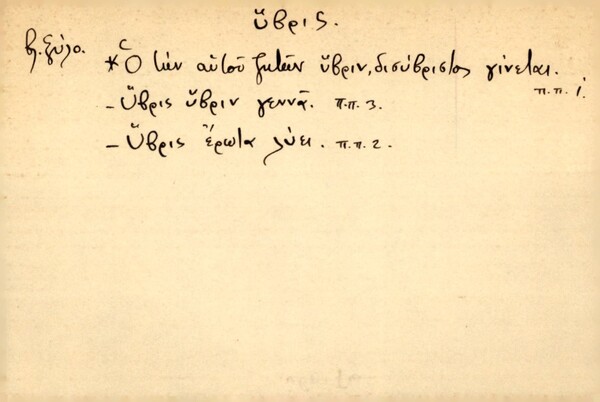 ὕβρις.
βλ. ξύλο.
* Ὁ τὴν αὐτοῦ ζητῶν ὕβριν, δισύβριστος γίνεται.
π.π. 1.
– Ὕβρις ὕβριν γεννᾷ. π.π. 3.
– Ὕβρις ἔρωτα λύει. π.π. 2.